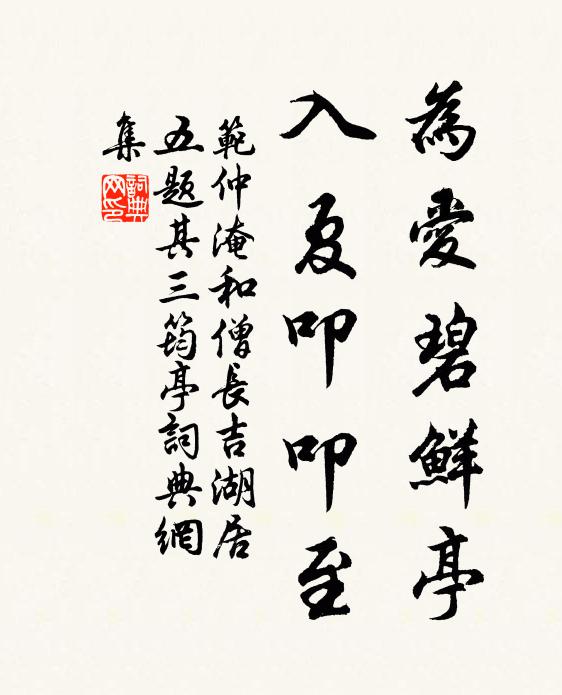 為愛碧鮮亭
入夏叩叩至
範仲淹和僧長吉湖居
五題其三筠亭詞典網
集
詞典
网印